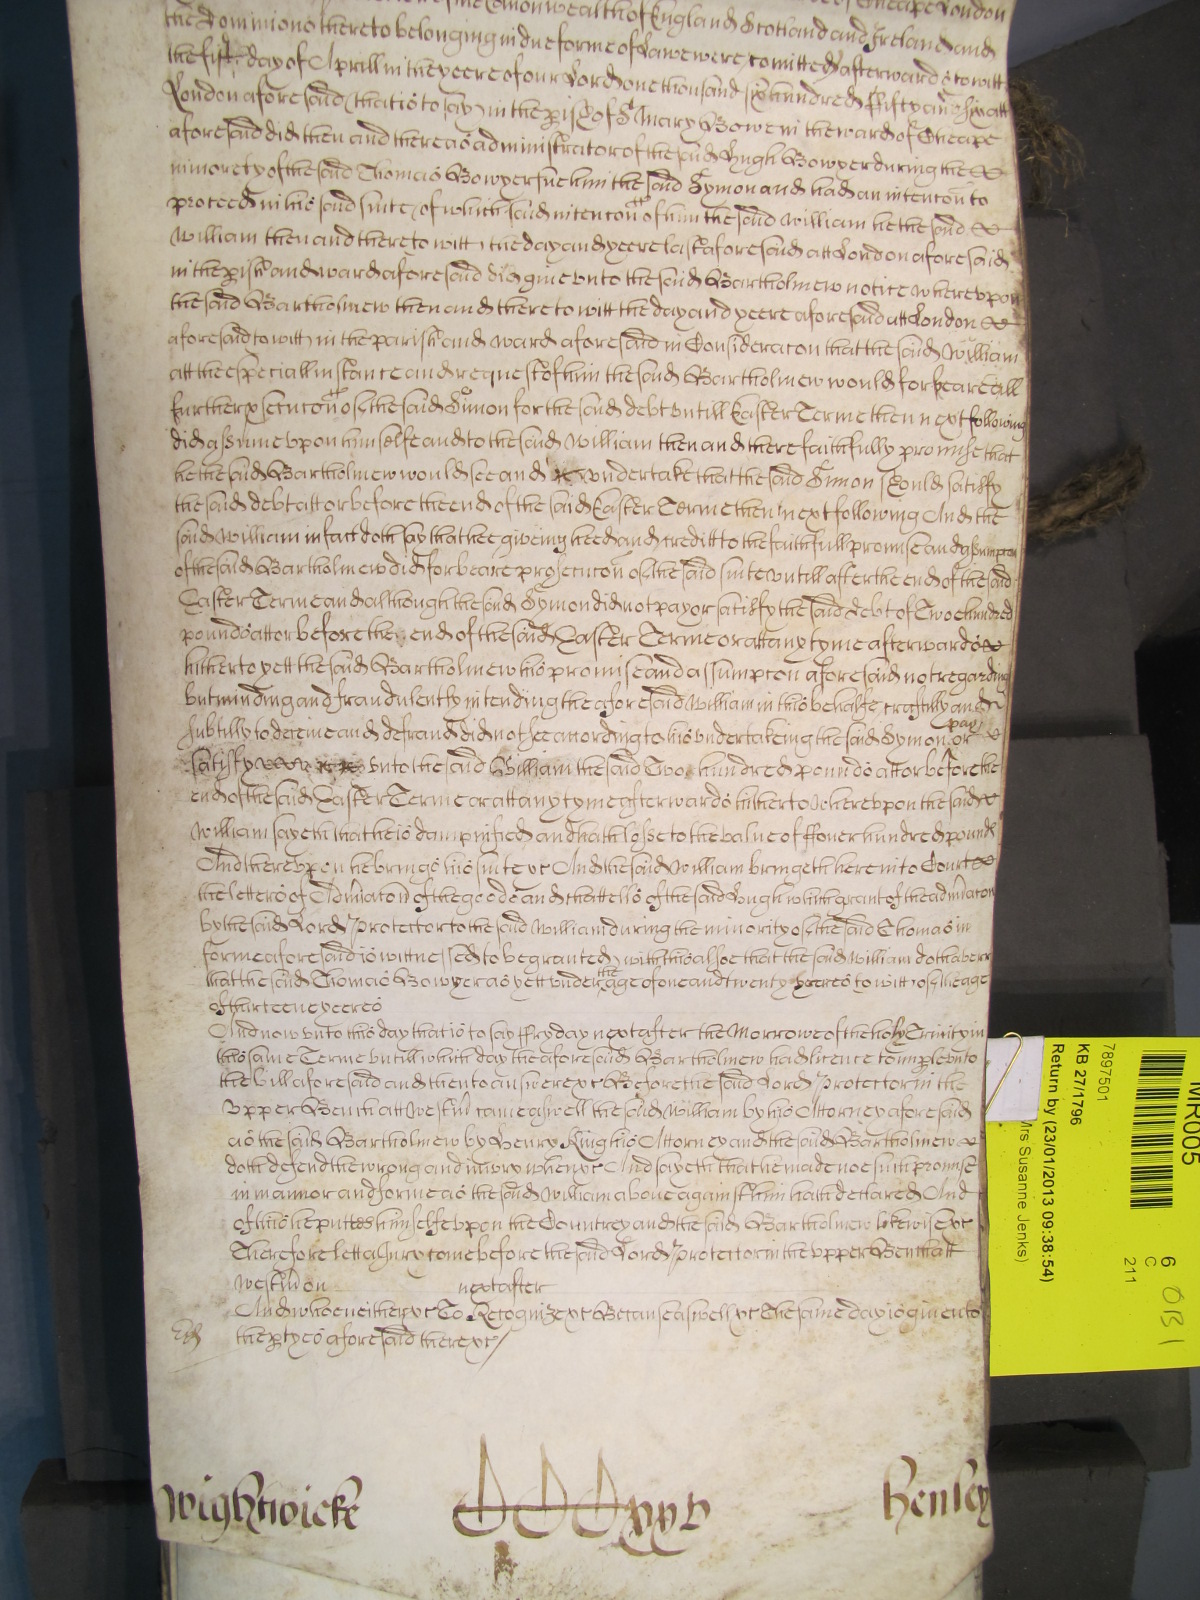 the Com̄onwealth of England Scotland and Ireland and
the Dominions thereto belonging in due forme of Lawe were com̄itted afterwards to witt
the first day of Aprill in the yeere of our Lord one thousand six hundred fifty and six att
London aforesaid that is to say in the p̱ish of S Mary Bowe in the ward of Cheape
aforesaid did then and there as administrator of the said Hugh Bowyer during the
minorety of the said Thomas Bowyer sue him the said Symon and had an intenc̄on to
proceed in his said suite of which said intenc̄on of him the said William he the said
William then and there to witt the day and yeere last aforesaid att London aforesaid
in the p̱ish and ward aforesaid did give unto the said Bartholmew notice whereupon
the said Bartholmew then and there to witt the day and yeere aforesaid att London
aforesaid to witt in the parish and ward aforesaid in Considerac̄on that the said William
att the especiall instance and request of him the said Bartholmew would forbeare all
further p̱secuc̄on of the said Simon for the said debt untill Easter Terme then next following
did assume upon himselfe and to the said William then and there faithfully promise that
he the said Bartholmew would see and undertake that the said Simon should satisfy
the said debt att or before the end of the said Easter Terme then next following And the
said William in fact doth say that hee giveing heed and creditt to the faithfull promise and assumpc̄on
of the said Bartholmew did forbeare prosecuc̄on of the said suite untill after the end of the said
Easter Terme and although the said Symon did not pay or satisfy the said debt of Two hundred
pounds att or before the end of the said Easter Terme or att any tyme afterwards
hitherto yett the said Bartholmew his promise and assumpc̄on aforesaid not regarding
but minding and fraudulently intending the aforesaid William in this behalfe craftily and
subtilly to deceive and defraud did not see according to his undertakeing the said Symon pay or
satisfy unto the said William the said Two hundred pounds att or before the
end of the said Easter Terme or att any tyme afterwards hitherto Whereupon the said
William sayeth that he is dampnified and hath losse to the value of ffower hundred pounds
And thereupon he brings his suite &c And the said William bringeth here into Court
the letters of Adm̄iac̄on of the goods and chattells of the said Hugh which grant of the adm̄iac̄on
by the said Lord Protector to the said William during the minority of the said Thomas in
forme aforesaid is wittnessed to be granted with this alsoe that the said William doth averr
that the said Thomas Bowyer as yett under the age of one and twenty yeeres to witt of the age
of thirteene yeeres
And now unto this day that is to say ffryday next after the Morrowe of the holy Trinity in
this same Terme untill which day the aforesaid Bartholmew had licence to imp̱le unto
the bill aforesaid and then to answere &c Before the said Lord Protector in the
Upper Bench att Westm̄ came aswell the said William by his Attorney aforesaid
as the said Bartholmew by Henry King his Attorney and the said Bartholmew
doth defend the wrong and iniury when &c And sayeth that he made noe such promise
in mannor and forme as the said William above against him hath declared And
of this he putteth himselfe upon the Countrey and the said Bartholmew likewise &c
Therefore lett a Jury come before the said Lord Protector in the upper Bench att
Westm̄ on next after
And who neither &c To Recognize &c Because aswell &c The same day is given to
the p̱tyes aforesaid there &c
Wightwicke
xxv
Henley
MR005
7897501
KB 27/1796
Return by (23/01/2013 09:38:54)
Mrs Susanne Jenks)
6
C
211